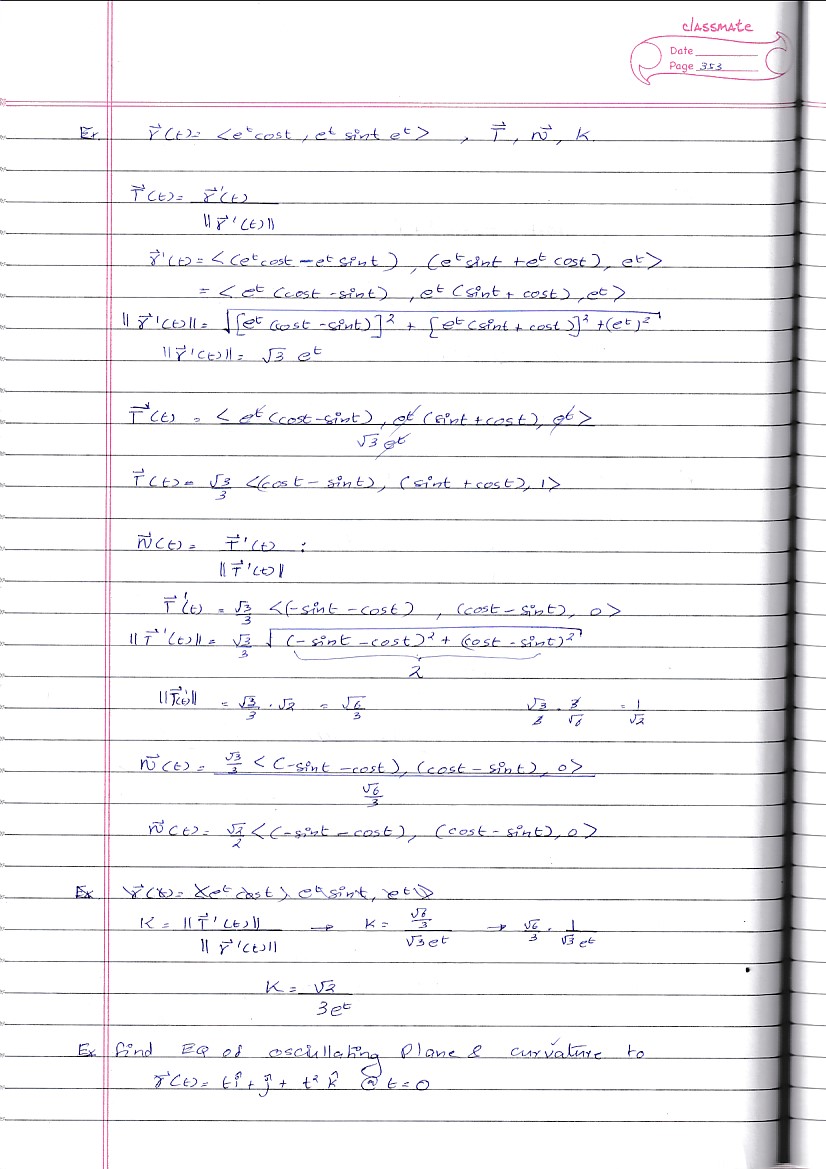 classmate
Date
Page 353
Ex. r⃗(t) = <eᵗcost, eᵗ sint eᵗ> , T⃗, N⃗, K.
T⃗(t) = r⃗'(t) / ||r⃗'(t)||
r⃗'(t) = <(eᵗcost - eᵗsint), (eᵗsint + eᵗ cost), eᵗ>
= <eᵗ (cost - sint), eᵗ (sint + cost), eᵗ>
||r⃗'(t)|| = √([eᵗ (cost - sint)]² + [eᵗ (sint + cost)]² + (eᵗ)²)
||r⃗'(t)|| = √3 eᵗ
T⃗(t) = <eᵗ (cost - sint), eᵗ (sint + cost), eᵗ> / √3 eᵗ
T⃗(t) = √3/3 <(cost - sint), (sint + cost), 1>
N⃗(t) = T⃗'(t) / ||T⃗'(t)|| :
T⃗'(t) = √3/3 <(-sint - cost), (cost - sint), 0>
||T⃗'(t)|| = √3/3 √((-sint - cost)² + (cost - sint)²)
2
||T⃗'(t)|| = √3/3 · √2 = √6/3 √3/3 · 3/√6 = 1/√2
N⃗(t) = √3/3 <(-sint - cost), (cost - sint), 0> / √6/3
N⃗(t) = √2/2 <(-sint - cost), (cost - sint), 0>
Ex. r⃗(t) = <eᵗ cost, eᵗ sint, eᵗ>
K = ||T⃗'(t)|| / ||r⃗'(t)|| → K = (√6/3) / √3 eᵗ → √6/3 · 1/√3 eᵗ
K = √2 / 3eᵗ
Ex. find EQ of oscillating Plane & curvature to
r⃗(t) = tî + ĵ + t² k̂ @ t = 0